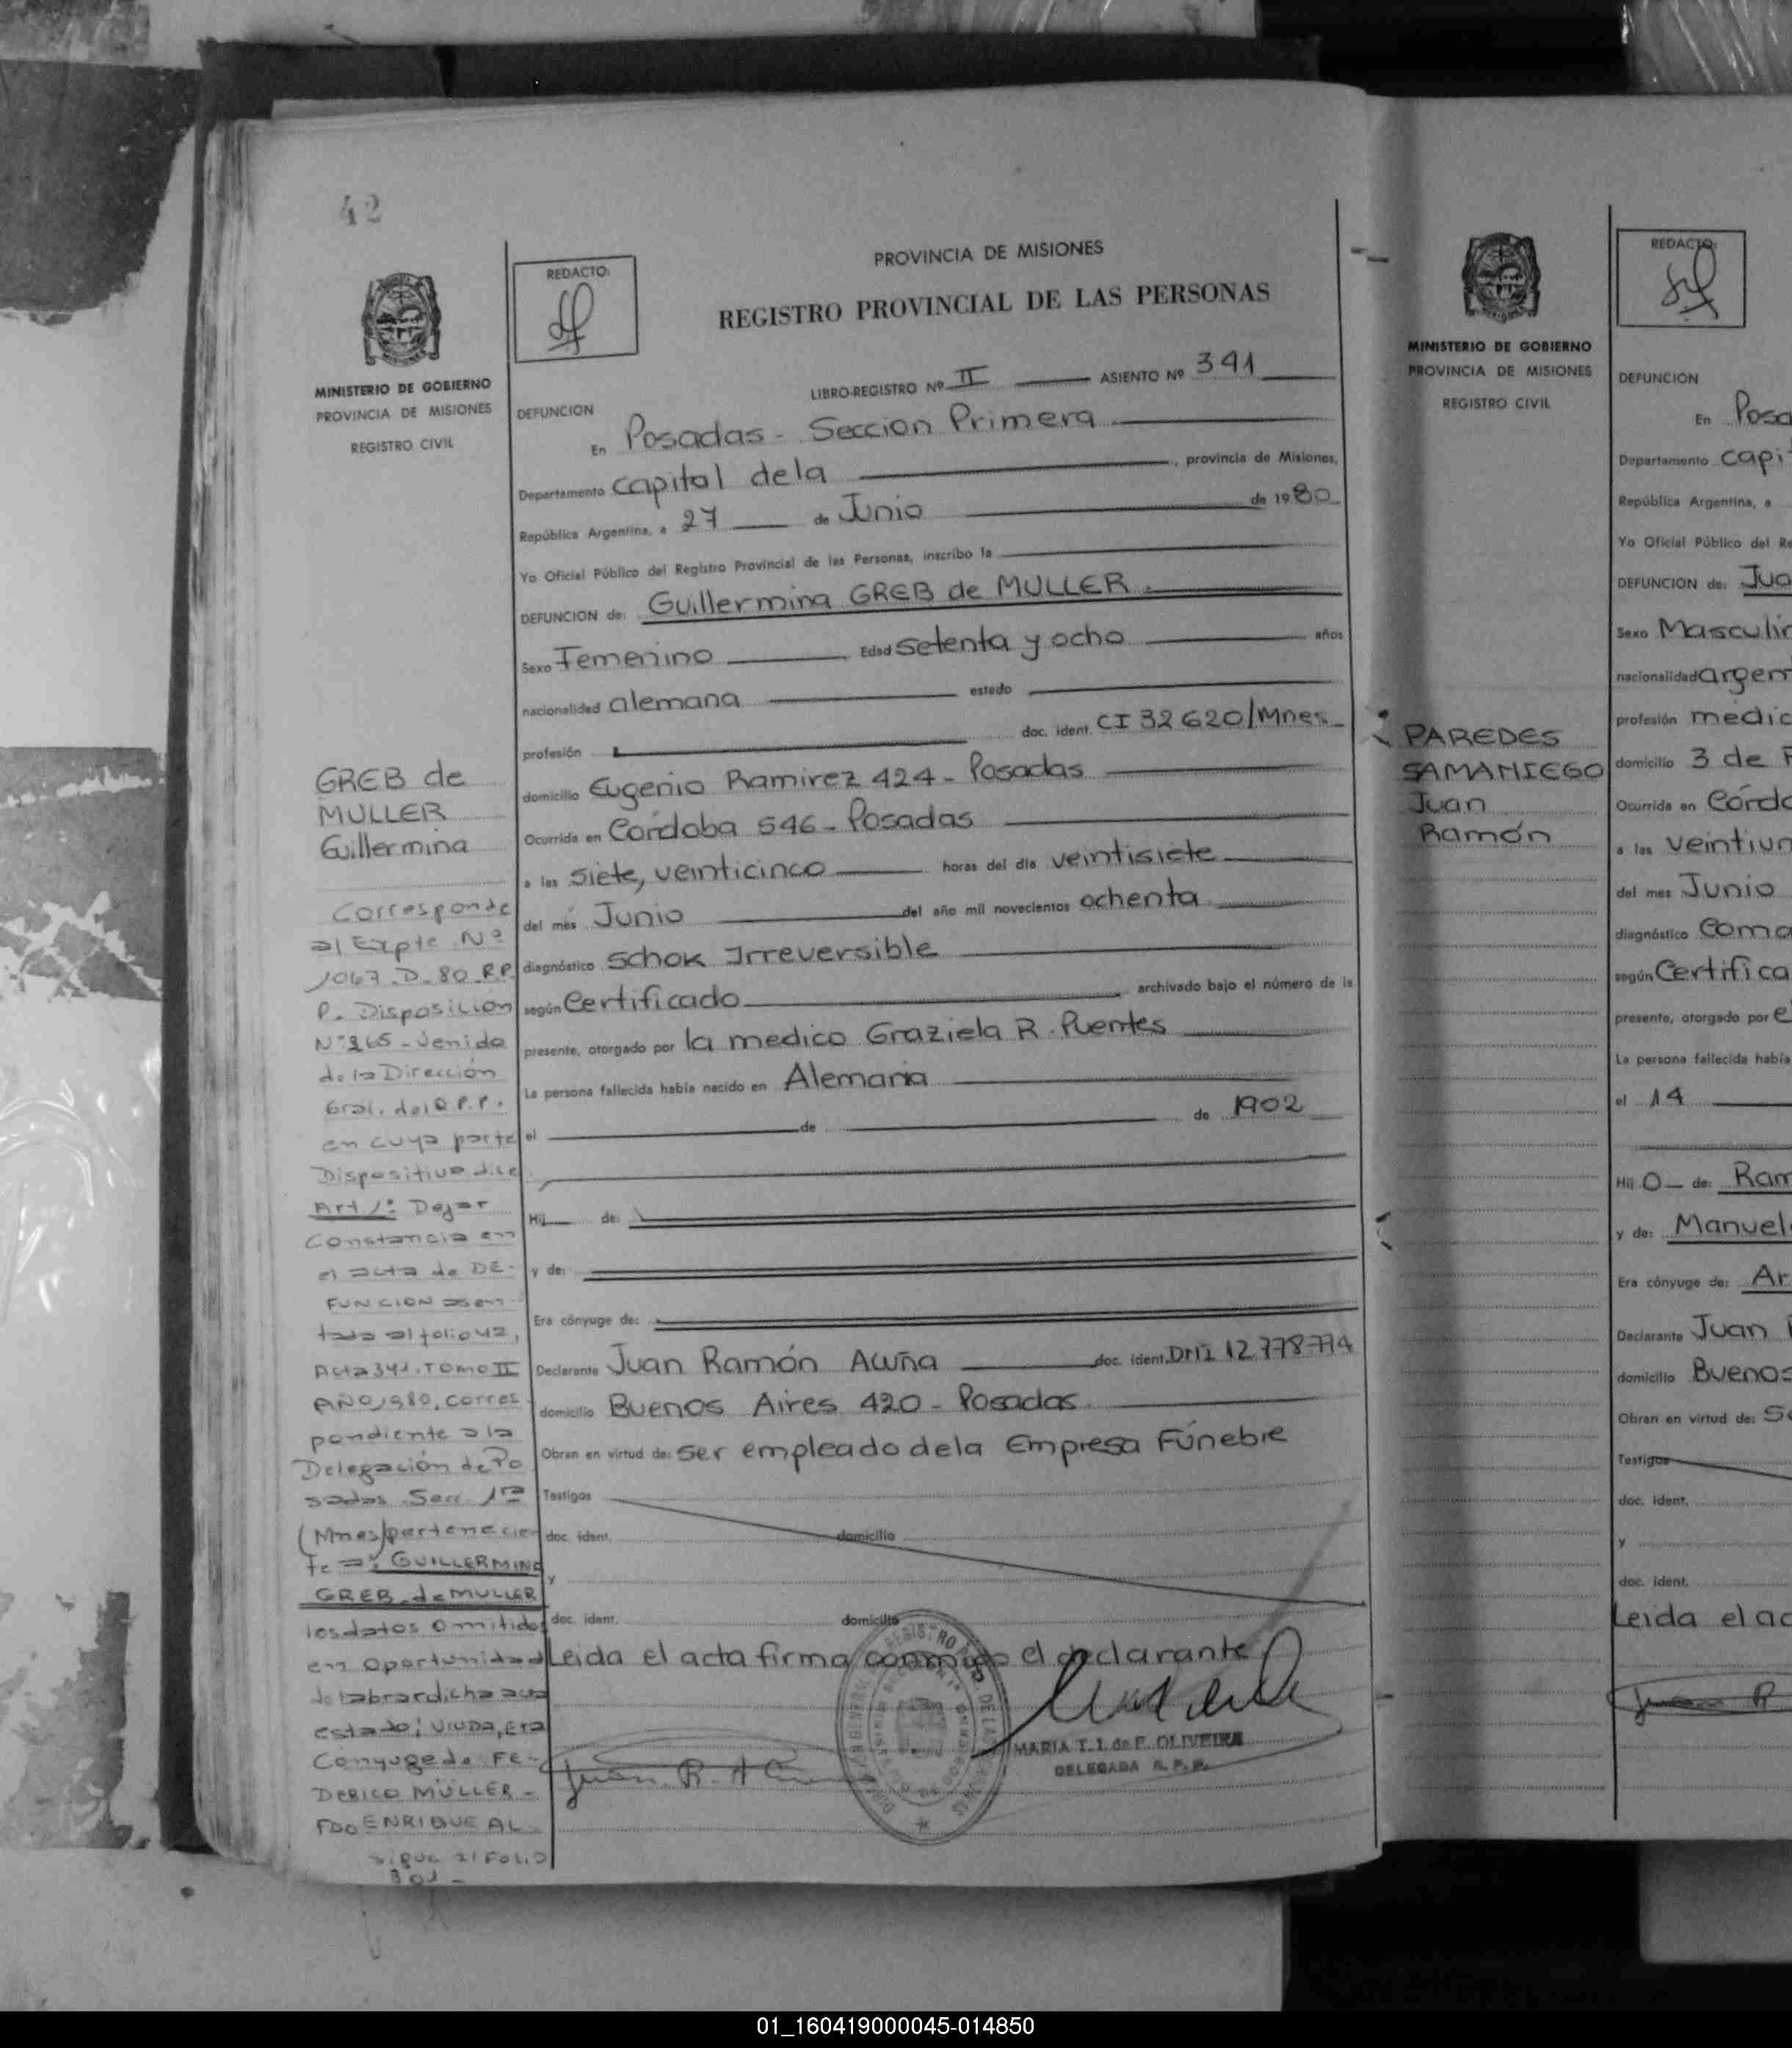 42
MINISTERIO DE GOBIERNO
PROVINCIA DE MISIONES
REGISTRO CIVIL
GREB de
MULLER
Guillermina
Corresponde
al Expte. Nº
1067-D-80-R.P.
P. Disposición
Nº 265-Venido
de la Dirección
Gral. del R.P.P.
en cuya parte
Dispositiva dice
Art 1º: Dejar
Constancia en
el acta de DE-
FUNCION asen-
tada al folio 42,
Acta 341. TOMO II
AÑO 1980, corres
pondiente a la
Delegación de Po
sadas Secc. 1ra
(Mnes) pertenecien
te a: GUILLERMINA
GREB de MULLER
los datos omitidos
en oportunidad
de labrar dicha acta
estado: VIUDA, Era
Conyuge de: FE-
DERICO MÜLLER-
FDO ENRIQUE AL-
sigue al FOLIO
301-
REDACTO:
PROVINCIA DE MISIONES
REGISTRO PROVINCIAL DE LAS PERSONAS
LIBRO-REGISTRO Nº II ASIENTO Nº 341
DEFUNCION
En Posadas - Seccion Primera
Departamento capital dela , provincia de Misiones,
República Argentina, a 27 de Junio de 1980
Yo Oficial Público del Registro Provincial de las Personas, inscribo la
DEFUNCION de: Guillermina GREB de MULLER.
Sexo Femenino Edad Setenta y ocho años
nacionalidad alemana estado
profesión doc. ident. CI 32620/Mnes
domicilio Eugenio Ramirez 424 - Posadas
Ocurrida en Córdoba 546 - Posadas
a las siete, veinticinco horas del día veintisiete
del més Junio del año mil novecientos ochenta
diagnóstico Schok Irreversible
según Certificado archivado bajo el número de la
presente, otorgado por la medico Graziela R. Puentes
La persona fallecida había nacido en Alemania
el de de 1902
Hij de:
y de:
Era cónyuge de:
Declarante Juan Ramón Acuña doc. ident. DNI 12.778.774
domicilio Buenos Aires 420 - Posadas.
Obran en virtud de: ser empleado dela Empresa Fúnebre
Testigos
doc. ident. domicilio
y
doc. ident. domicilio
Leida el acta firma conmigo el declarante
Juan R. A
MARIA T. I. de F. OLIVEIRA
DELEGADA R. P. P.
MINISTERIO DE GOBIERNO
PROVINCIA DE MISIONES
REGISTRO CIVIL
PAREDES
SAMANIEGO
Juan
Ramón
REDACTO:
DEFUNCION
En Posa
Departamento capit
República Argentina, a
Yo Oficial Público del Re
DEFUNCION de: Jua
Sexo Masculin
nacionalidad argen
profesión medic
domicilio 3 de F
Ocurrida en Córdo
a las veintiun
del mes Junio
diagnóstico Coma
según Certifica
presente, otorgado por e
La persona fallecida había
el 14
Hij o de: Ram
y de: Manuel
Era cónyuge de: Ar
Declarante Juan
domicilio Buenos
Obran en virtud de: Se
Testigos
doc. ident.
y
doc. ident.
Leida el ac
Juan R
01_160419000045-014850